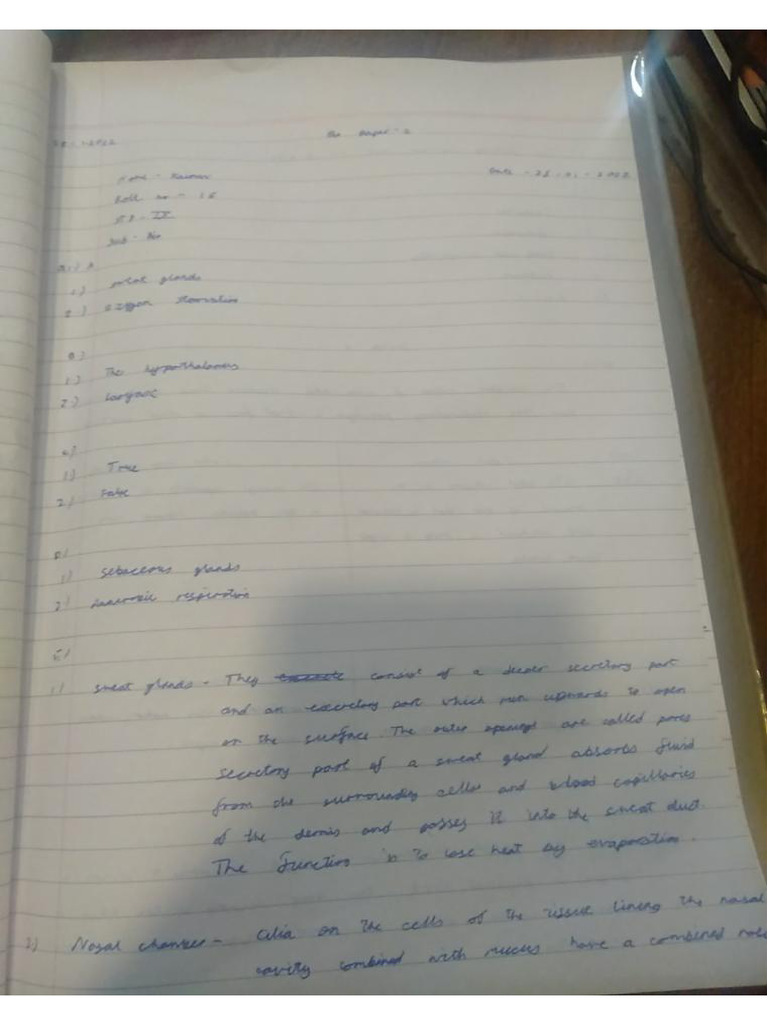 Bio Paper - 2
Date - 28 - 01 - 2022
Roll no - 16
STD - IX
Sub - Bio
A
1) sweat glands
2) oxygen starvation
B)
1) The hypothalamus
2) Larynx
C)
1) True
2) False
D)
1) sebaceous glands
2) Anaerobic respiration
E)
1) sweat glands - They consist of a deeper secretory part
and an excretory part which run upwards to open
on the surface. The outer openings are called pores
secretory part of a sweat gland absorbs fluid
from the surrounding cells and blood capillaries
of the dermis and passes it into the sweat duct.
The function is to lose heat by evaporation.
2) Nasal chamber - Cilia on the cells of the tissue lining the nasal
cavity combined with mucus have a combined role